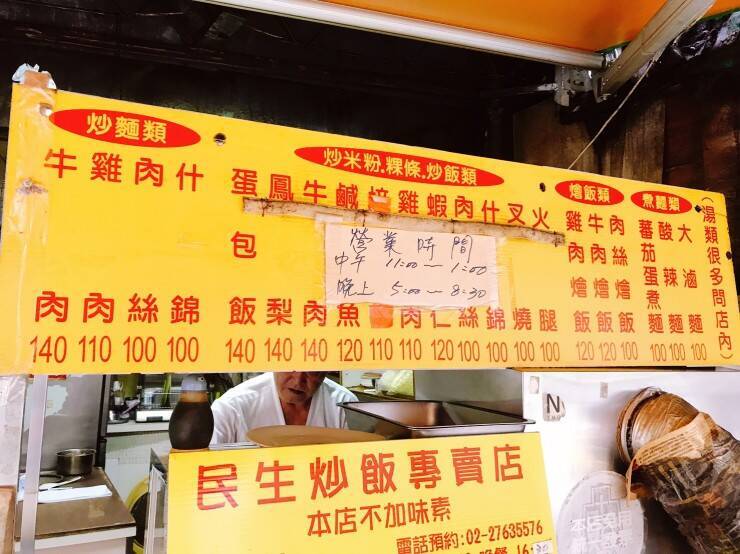 炒麵類
牛肉 140
雞肉 110
肉絲 100
什錦 100
炒米粉.粿條.炒飯類
蛋包飯 140
鳳梨 140
牛肉 140
鹹魚 120
110
雞肉 110
蝦仁 120
肉絲 100
什錦 100
叉燒 100
火腿 100
燴飯類
雞肉燴飯 120
牛肉燴飯 120
肉絲燴飯 100
煮麵類
蕃茄蛋煮麵 100
酸辣麵 100
大滷麵 100
(湯類很多問店內)
營業時間
中午 11:00~1:00
晚上 5:00~8:30
民生炒飯專賣店
本店不加味素
電話預約:02-27635576
N